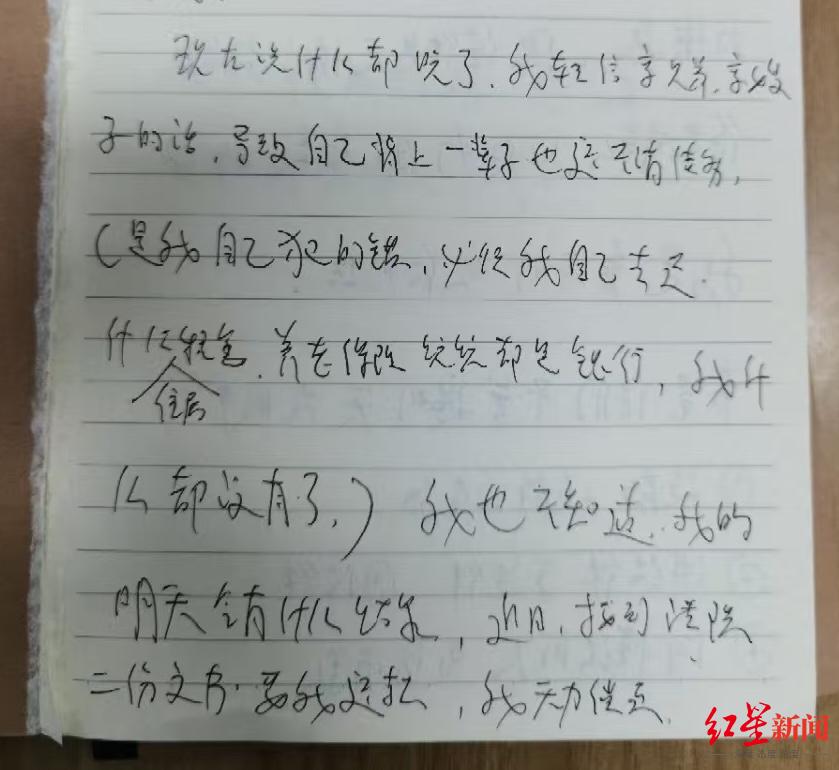 现在说什么都晚了.我轻信李兄弟.李嫂
子的话,导致自己背上一辈子也还不清债务,
(是我自己犯的错,必须我自己去还.
什么租金.养老保险 统统都是银行,我什
住房
么都没有了.)我也不知道.我的
明天会有什么结果,近日.接到法院
二份文书.要我还款,我无力偿还.
红星新闻